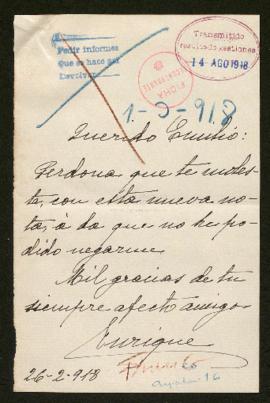 Pedir informes
Que se hace por
Devolver
Transmitido
resultado gestiones
14 AGO 1918
FICHA
1-3-918
Querido Emilio:
Perdona que te moles-
te, con esta nueva no-
ta, á la que no he po-
dido negarme
Mil gracias de tu
siempre afecto amigo
Enrique
26-2-918